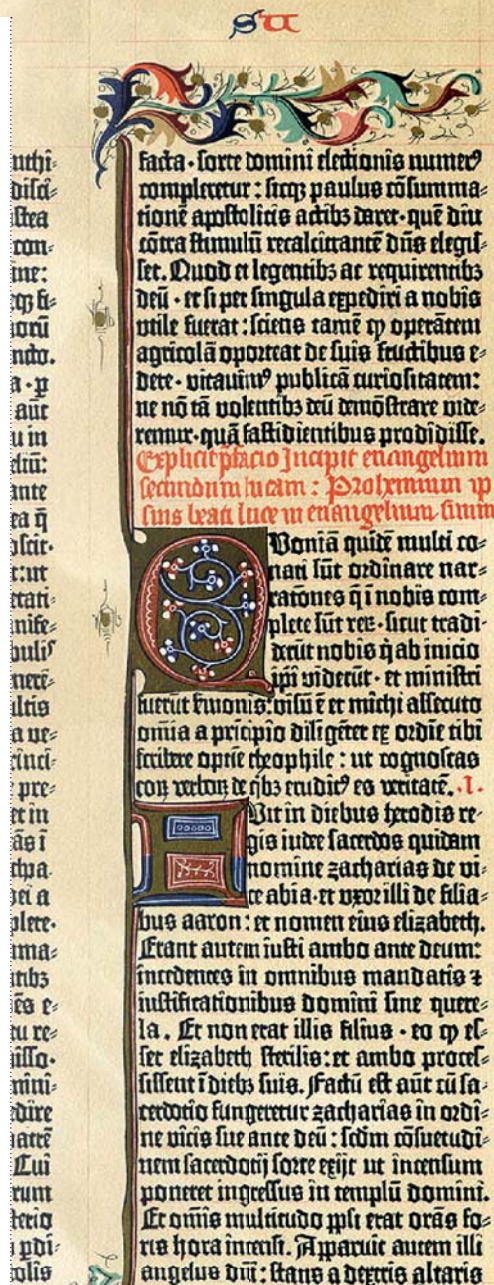 SU
uthi=
disci=
stea
con=
ine:
eqꝫ fi=
orū
ndo.
a · p
aūt
u in
eliū:
ante
ea q̄
oscit·
t:ut
ctati=
nife=
bulis
nerē=
ultis
a ve=
cinci=
e pre=
et in
ās ī
chpa
bei a
plere·
ma=
ntibꝫ
ēs e=
eu re=
isso·
mini=
edire
natrē
Cui
rum
sterio
pdi=
tolis
facta · sorte domini electionis numerꝰ
compleretur : sicqꝫ paulus cōsumma=
tionē apostolicis actibꝫ daret · quē diu
cōtra stimulū recalcitrantē dn̄s elegis=
set. Quod et legentibꝫ ac requirentibꝫ
deū · et si per singula expediri a nobis
vtile fuerat : sciens tamē ꝙ operātem
agricolā oporteat de suis fructibus e=
dere · vitauimꝰ publicā curiositatem:
ne nō tā volentibꝫ deū demōstrare vide=
remur · quā fastidientibus prodidisse.
Explicit p̄facio Incipit euangelium
secundum lucam : Prohemium ip
sius beati luce in euangelium suum
Quoniā quidē multi co=
nati sūt ordinare nar=
rationes q̄ ī nobis com=
plete sūt reꝝ · sicut tradi=
derūt nobis q̇ ab inicio
ip̄i viderūt · et ministri
fuerūt sermonis: visū ē et michi assecuto
omīa a pricipio diligēter ex ordīe tibi
scribere optīe theophile : ut cognoscas
eoꝝ verboꝝ de qͥbꝫ eruditꝰ es veritatē. .I.
Fuit in diebus herodis re=
gis iudee sacerdos quidam
nomine zacharias de vi=
ce abia · et vxor illi de filia=
bus aaron : et nomen eius elizabeth.
Erant autem iusti ambo ante deum:
incedentes in omnibus mandatis ⁊
iustificationibus domini sine quere=
la. Et non erat illis filius · eo ꝙ es=
set elizabeth sterilis: et ambo proces=
sissent ī diebꝫ suis. Factū est aūt cū sa=
cerdotio fungeretur zacharias in ordi=
ne vicis sue ante deū : scd̄m cōsuetudi=
nem sacerdotij sorte exijt ut incensum
poneret ingressus in templū domini.
Et om̄is multitudo pp̄li erat orās fo=
ris hora incensi. Apparuit autem illi
angelus dn̄i : stans a dextris altaris